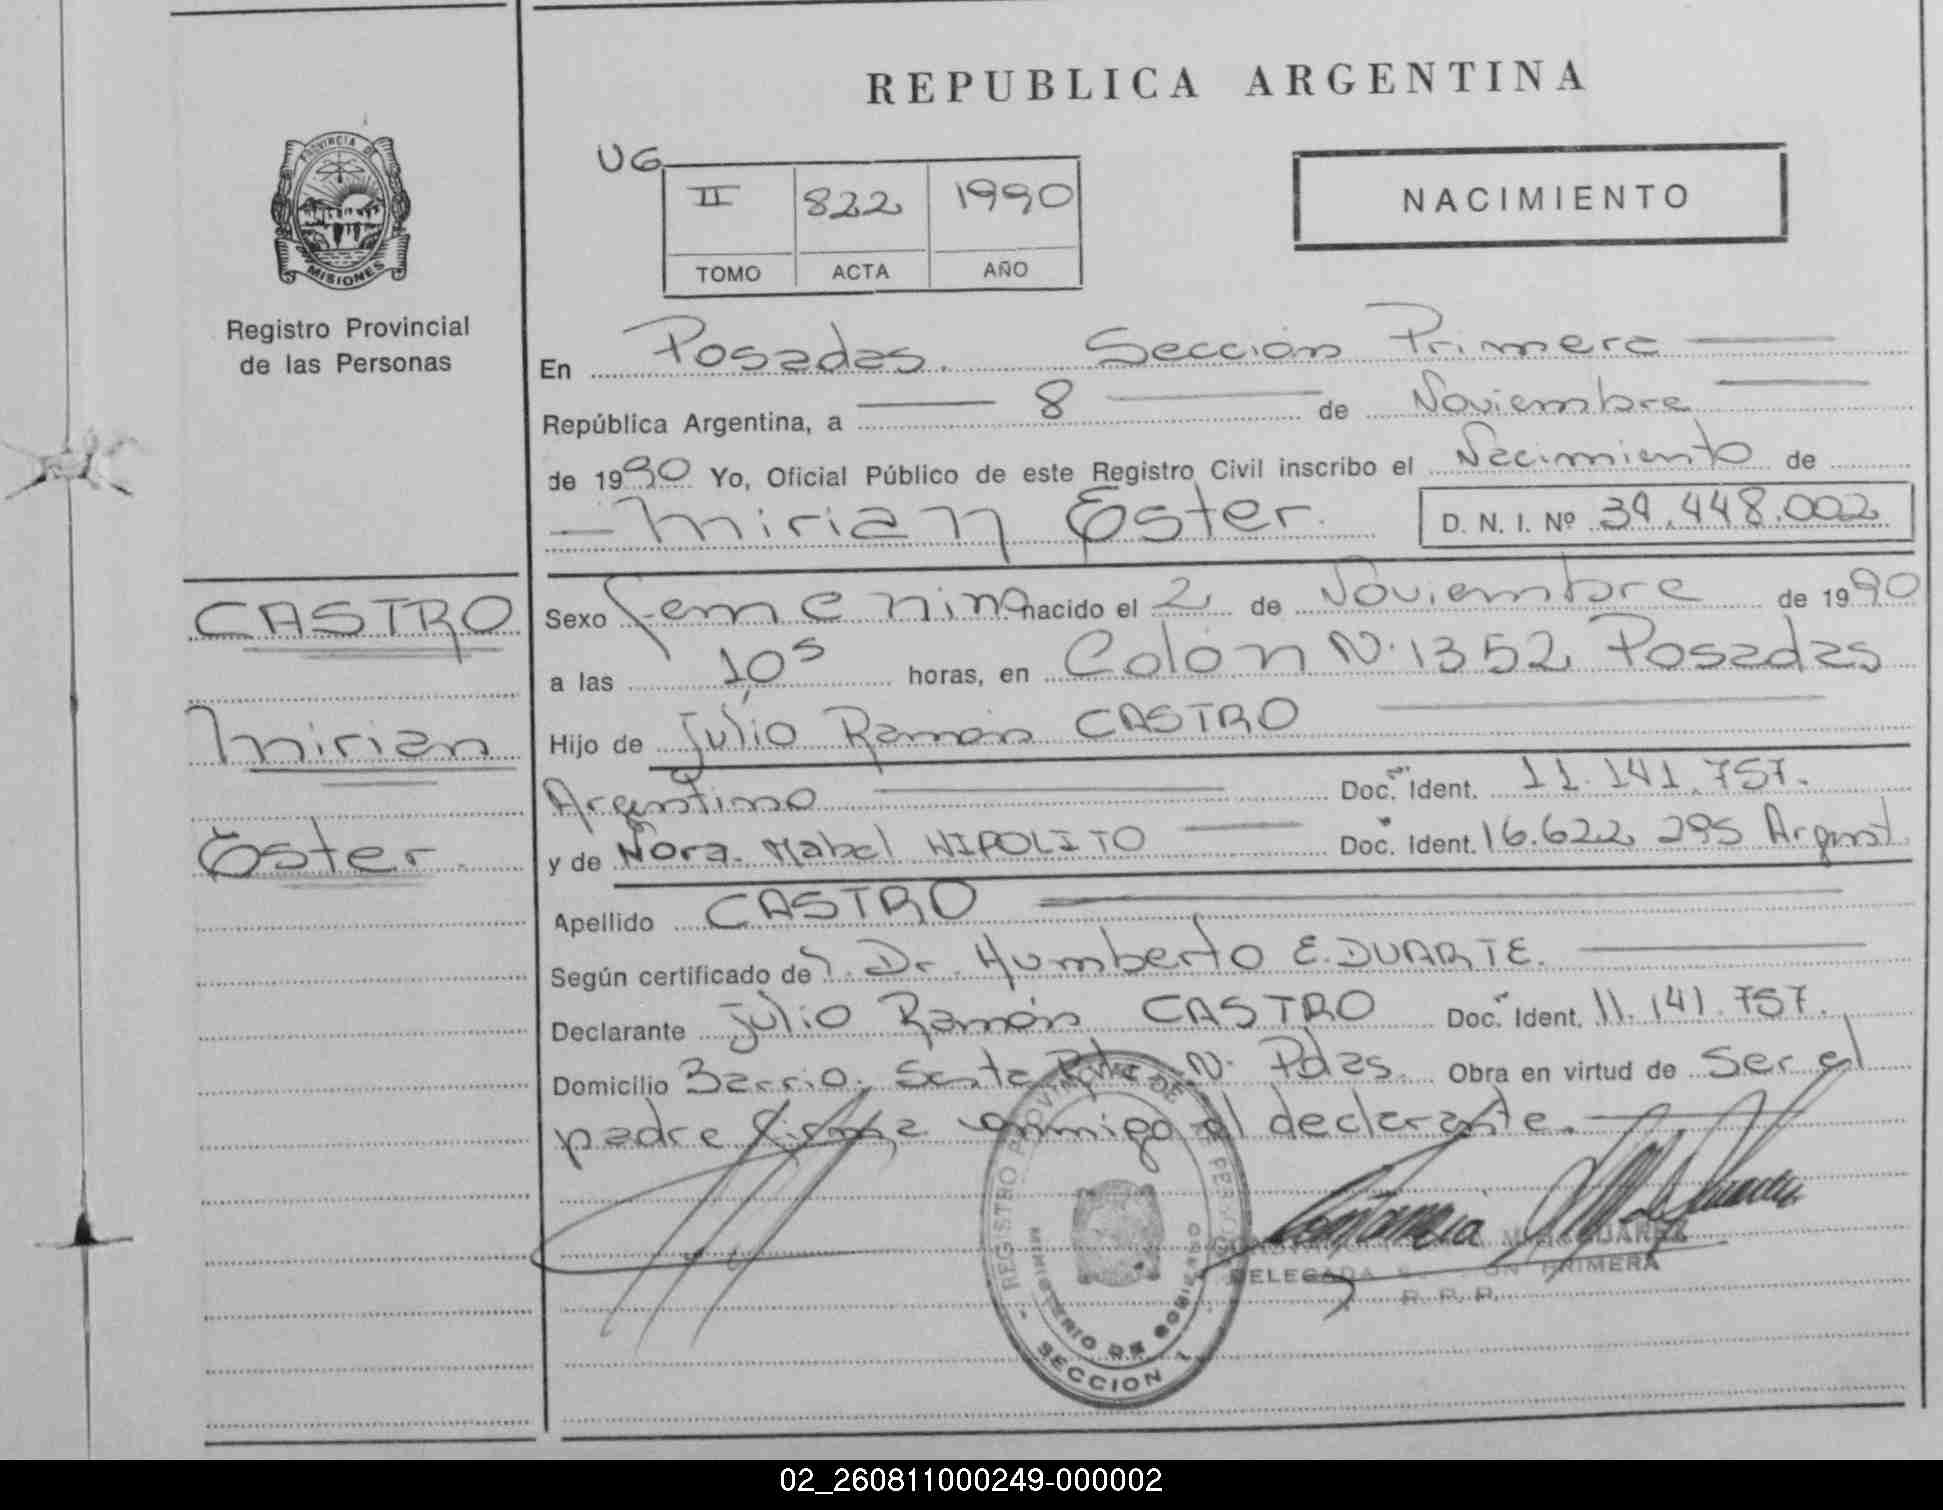 REPUBLICA ARGENTINA
PROVINCIA DE
MISIONES
Registro Provincial
de las Personas
UG
II 822 1990
TOMO ACTA AÑO
NACIMIENTO
En Posadas. Sección Primera
República Argentina, a 8 de Noviembre
de 1990 Yo, Oficial Público de este Registro Civil inscribo el Nacimiento de
Mirian Ester. D. N. I. Nº 34.448.002
CASTRO
Mirian
Ester.
Sexo femenino nacido el 2 de Noviembre de 1990
a las 10s horas, en Colón N. 1352 Posadas
Hijo de Julio Ramón CASTRO
Argentino Doc. Ident. 11.141.757.
y de Nora Mabel HIPOLITO Doc. Ident. 16.622 295 Argent.
Apellido CASTRO
Según certificado de Dr. Humberto E. DUARTE.
Declarante Julio Ramón CASTRO Doc. Ident. 11.141.757.
Domicilio Barrio Santa Rita N. Pdas. Obra en virtud de Ser el
padre firma conmigo el declarante.
REGISTRO PROVINCIAL DE
MINISTERIO DE GOBIERNO
SECCION 1
DELEGADA PRIMERA
R. P. P.
02_260811000249-000002